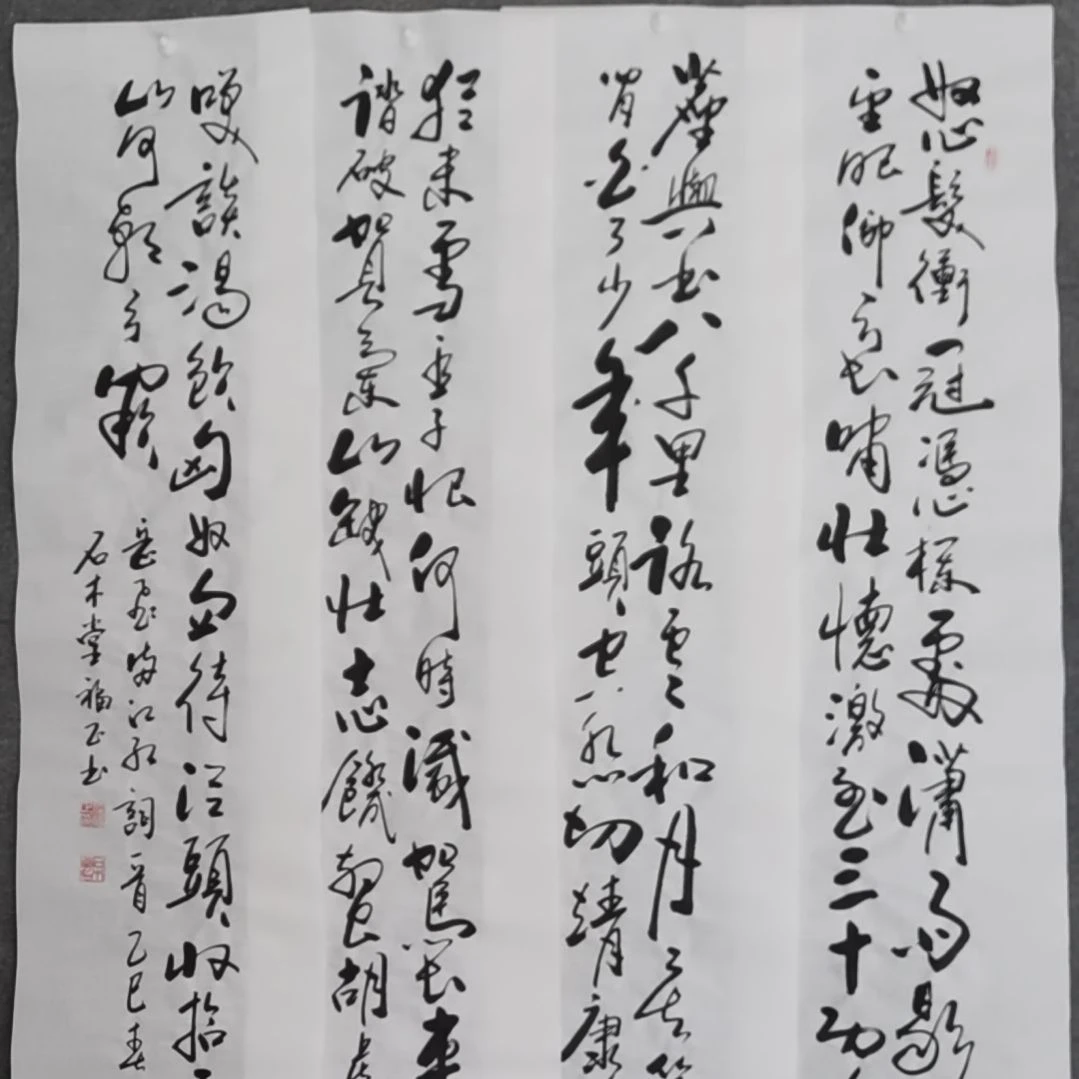 怒髮衝冠憑欄處瀟雨歇
望眼仰天長嘯壯懷激烈三十功
塵與土八千里路雲和月莫等
閒白了少年頭空悲切靖康
猶未雪臣子恨何時滅駕長車
踏破賀蘭山缺壯志飢餐胡虜
笑談渴飲匈奴血待從頭收拾
山河朝天闕
岳飛滿江紅詞一首乙巳春
石木堂福书